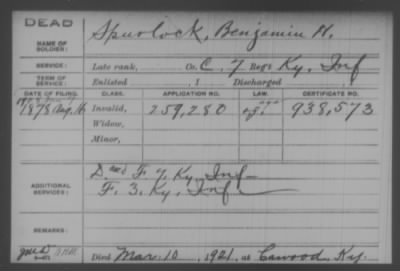 DEAD
NAME OF SOLDIER: Spurlock, Benjamin H.
SERVICE: Late rank, Co. C. 7 Reg't Ky. Inf
TERM OF SERVICE: Enlisted , 1 Discharged , 1
DATE OF FILING. CLASS. APPLICATION NO. LAW. CERTIFICATE NO.
1878 Aug. 16 Invalid, 259,280 938,573
Widow,
Minor,
ADDITIONAL SERVICES: F. 7. Ky. Inf
F. 3. Ky. Inf
REMARKS:
Died Mar. 10, 1921, at Cawood, Ky.